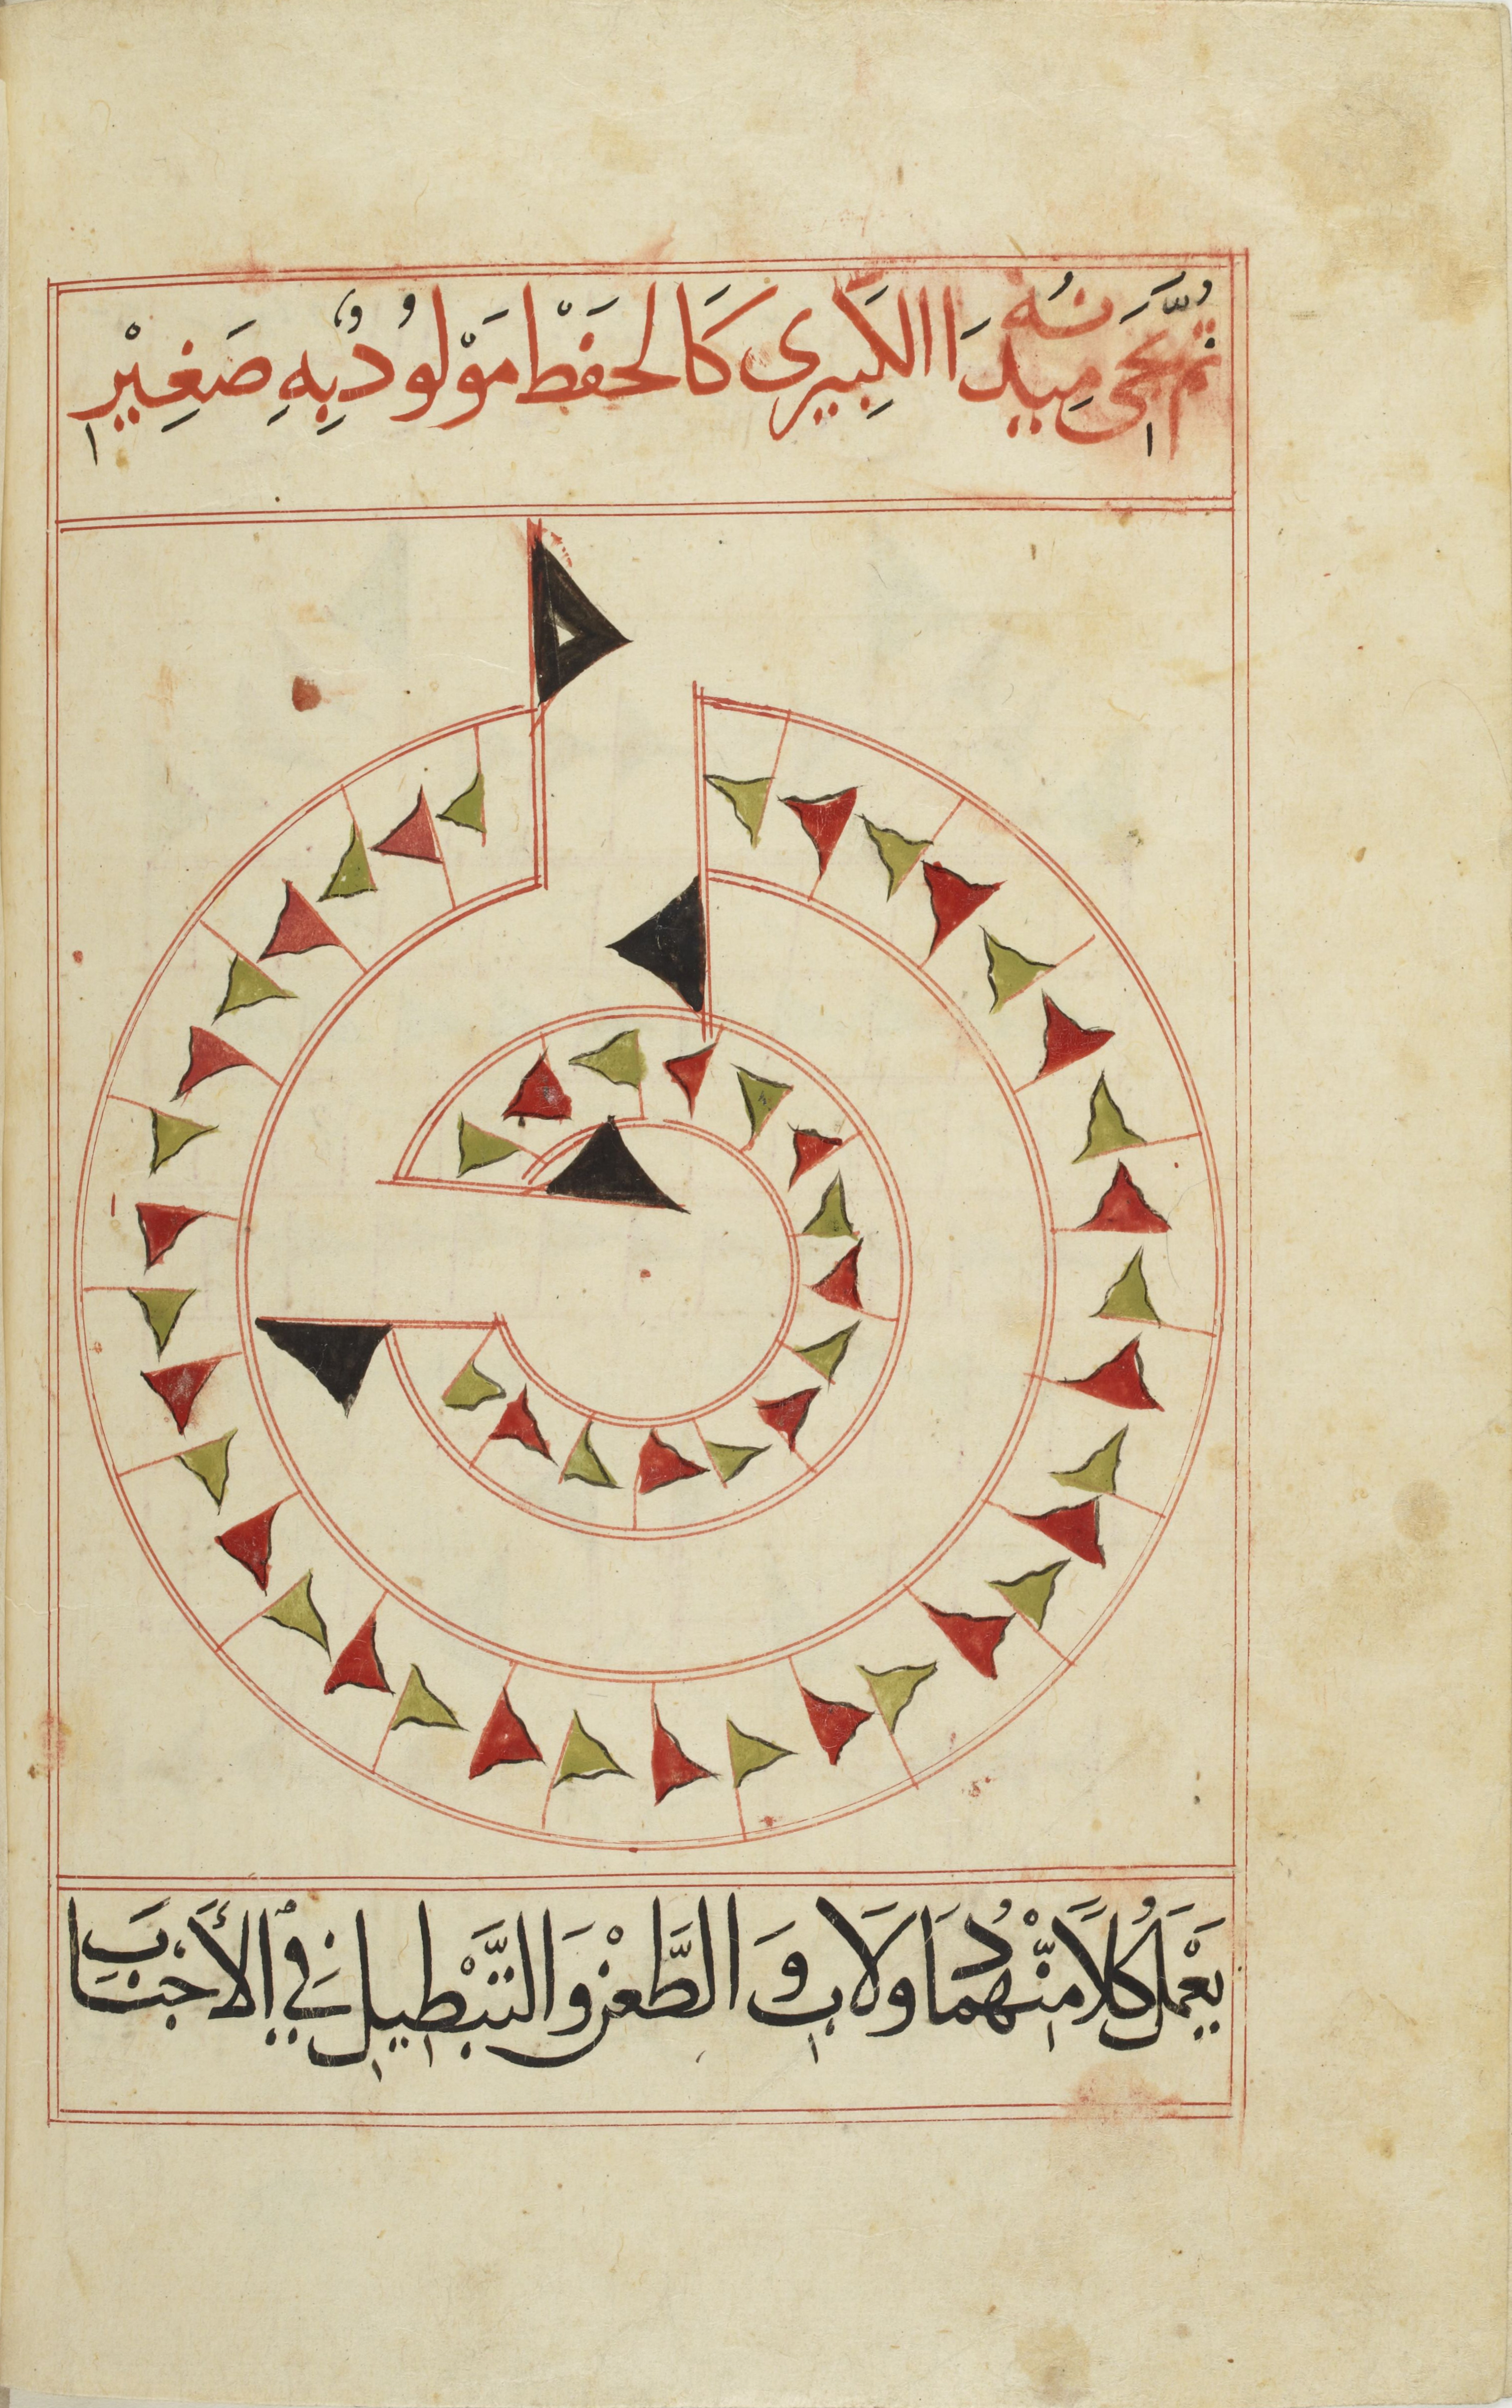 ثُمَّ يَجِىُٔ مِيدَانُهُ الكَبِيرى كَالحَفْظ مَوْلُودٌ بِهِ صَغِيْرٍ
يَعْمَلُ كُلاًّ مِنْهُمَا دُولَابٍ وَ الطَّعْنِ وَ التَّبْطِيلِ فِي الأَجْنَابَ